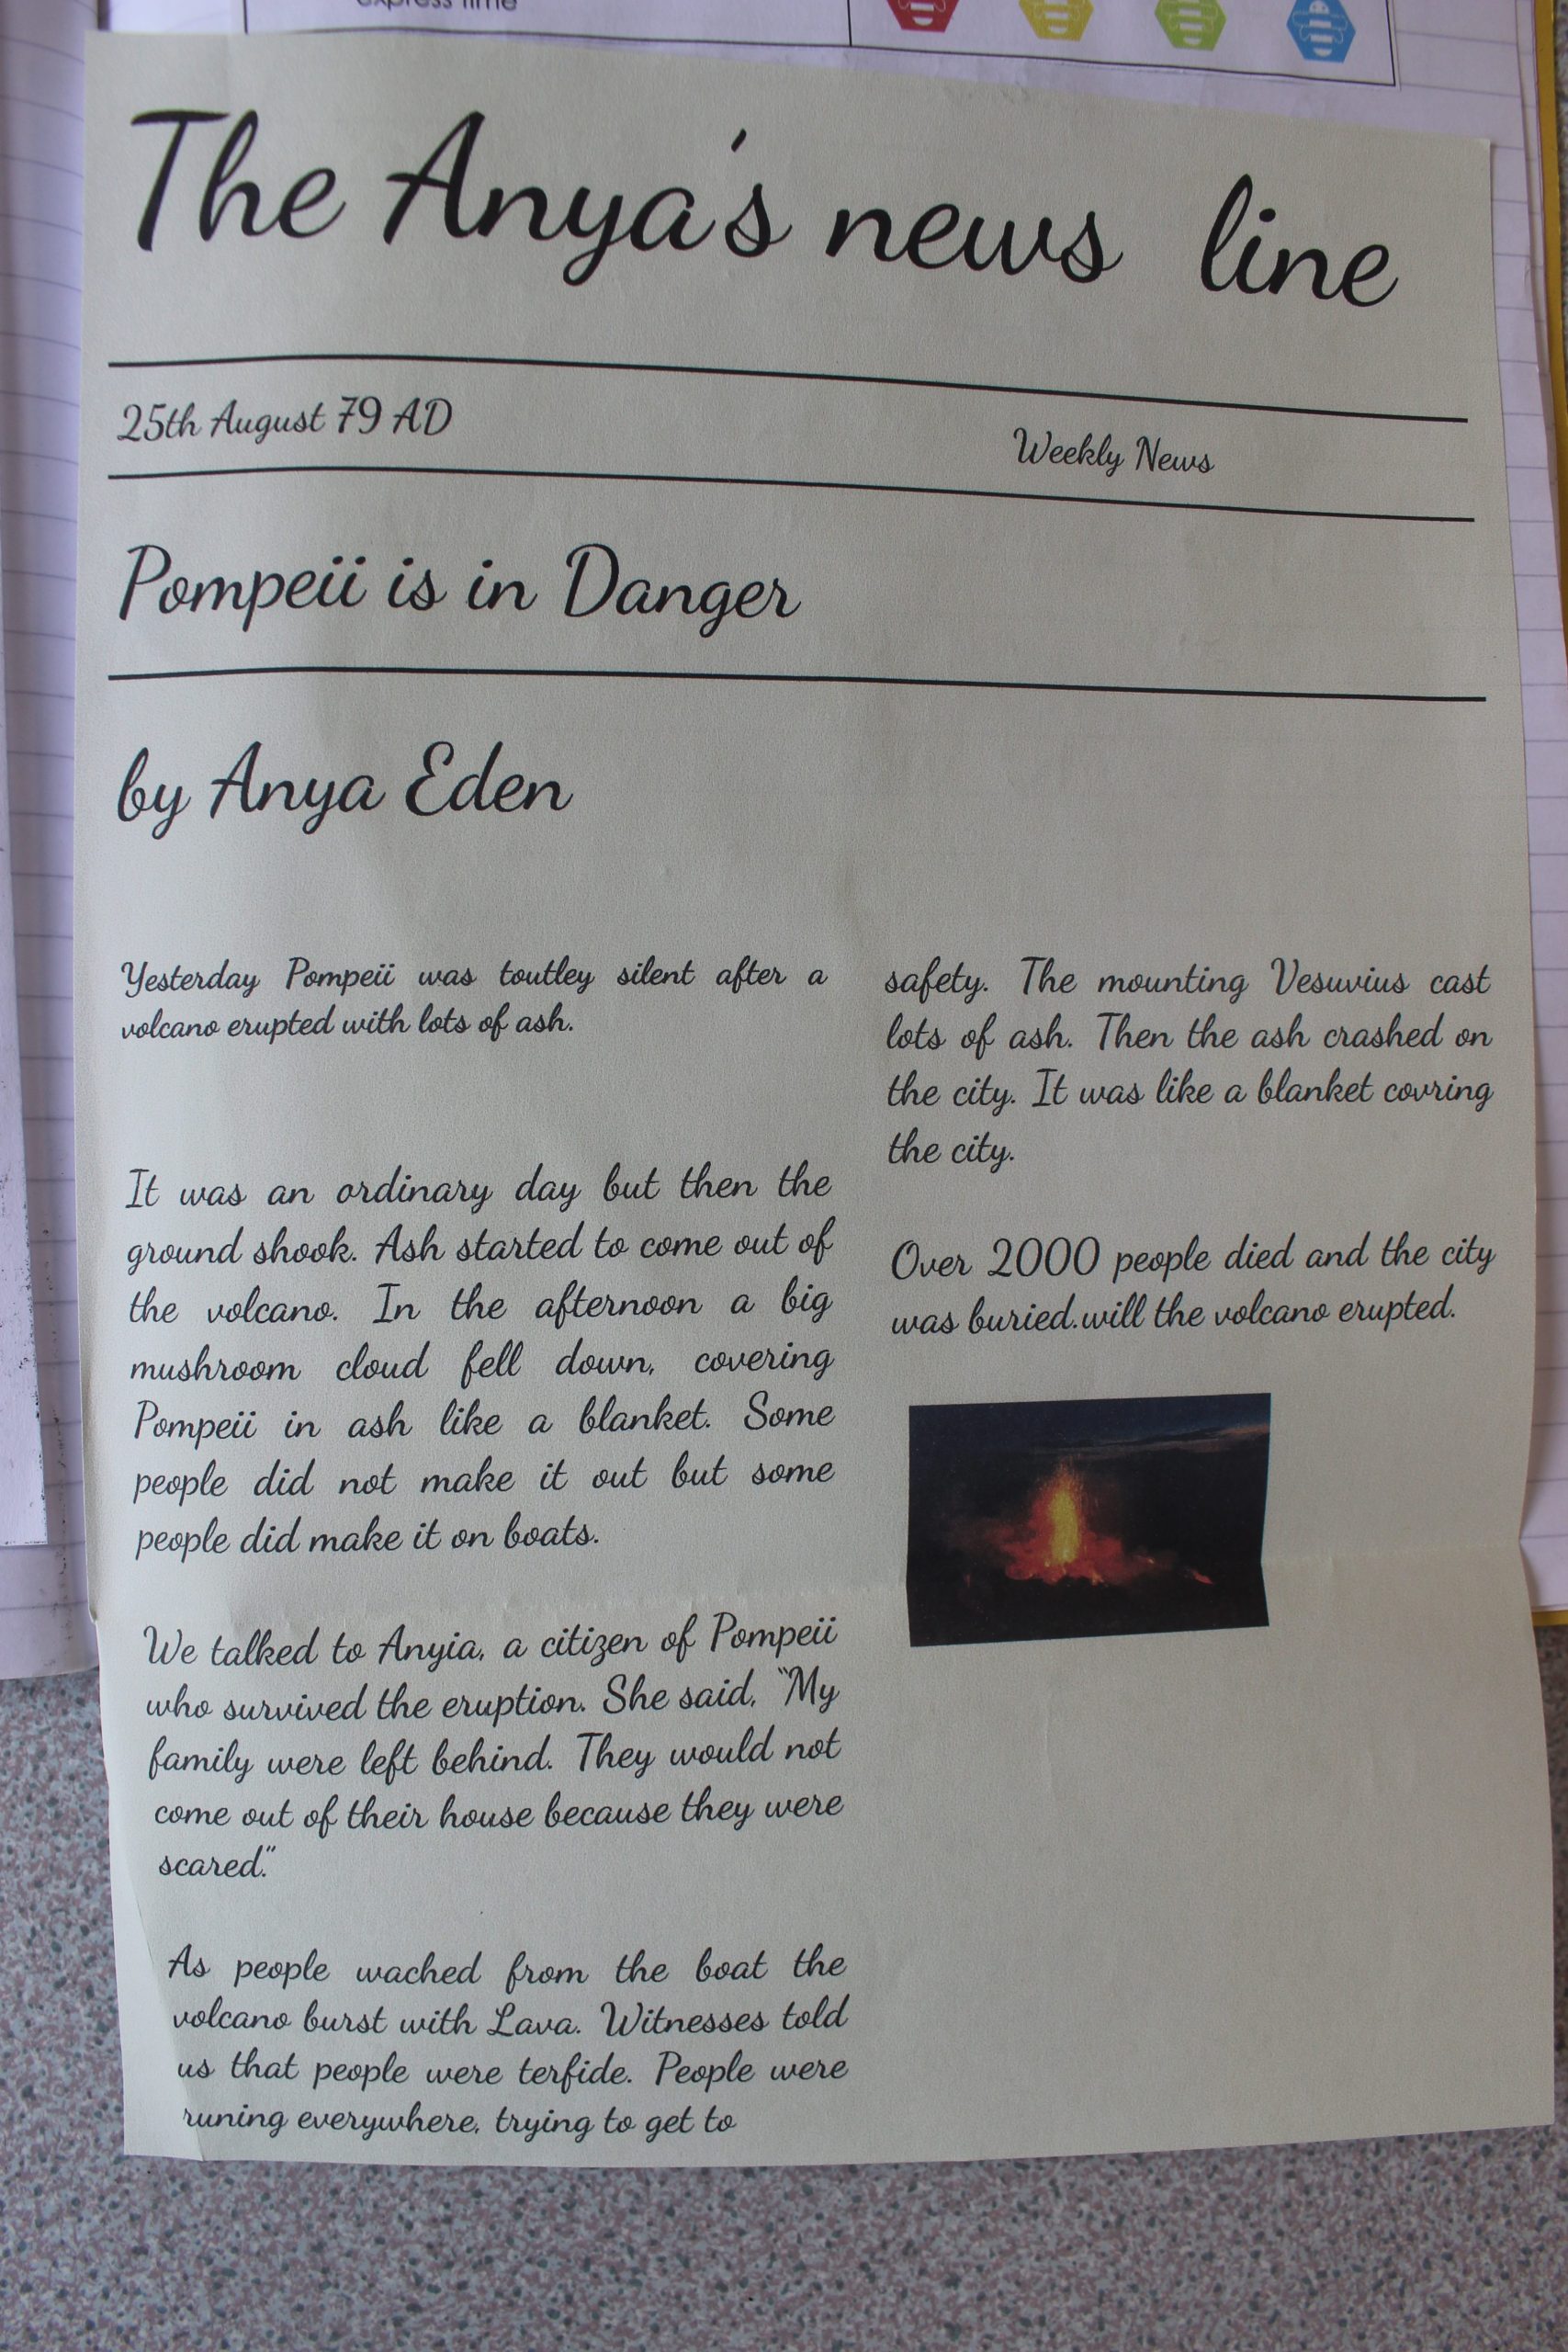 express time
The Anya's news line
25th August 79 AD
Weekly News
Pompeii is in Danger
by Anya Eden
Yesterday Pompeii was toutley silent after a
volcano erupted with lots of ash.
It was an ordinary day but then the
ground shook. Ash started to come out of
the volcano. In the afternoon a big
mushroom cloud fell down, covering
Pompeii in ash like a blanket. Some
people did not make it out but some
people did make it on boats.
We talked to Anyia, a citizen of Pompeii
who survived the eruption. She said, "My
family were left behind. They would not
come out of their house because they were
scared."
As people wached from the boat the
volcano burst with Lava. Witnesses told
us that people were terfide. People were
runing everywhere, trying to get to
safety. The mounting Vesuvius cast
lots of ash. Then the ash crashed on
the city. It was like a blanket covring
the city.
Over 2000 people died and the city
was buried.will the volcano erupted.